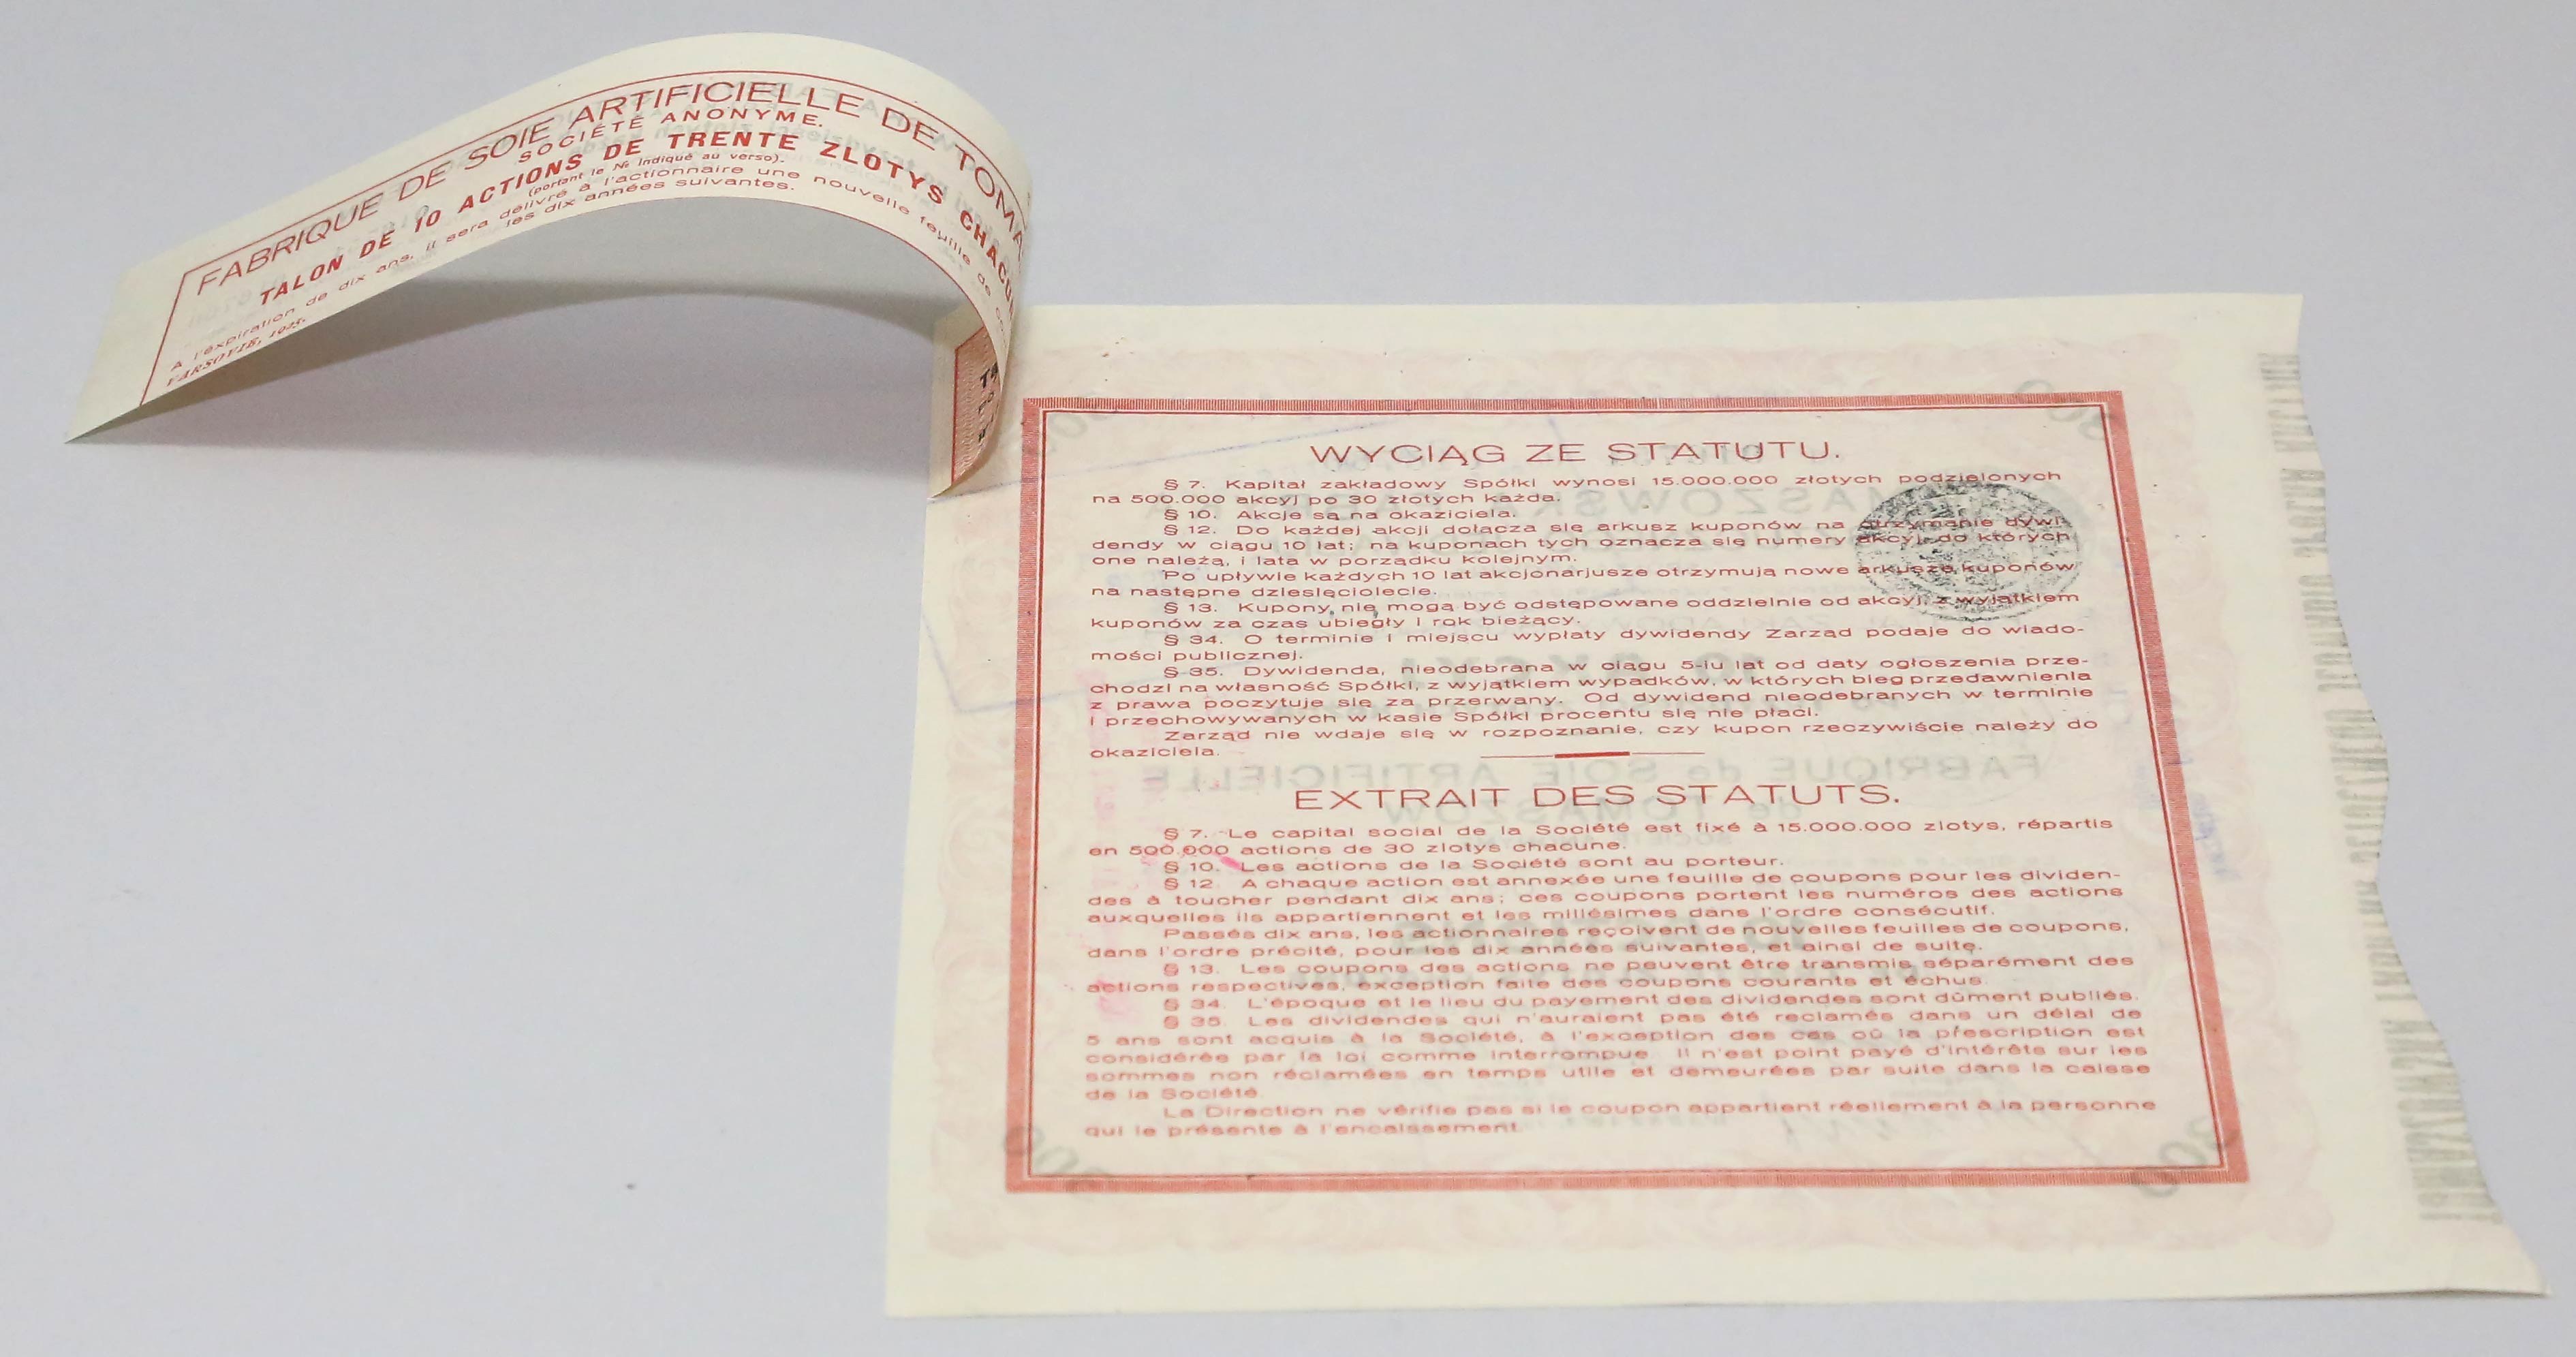 FABRIQUE DE SOIE ARTIFICIELLE DE TOMA
SOCIÉTÉ ANONYME.
TALON DE 10 ACTIONS DE TRENTE ZLOTYS CHACUN
(portant le № indiqué au verso).
A l'expiration de dix ans, il sera délivré à l'actionnaire une nouvelle feuille de
les dix années suivantes.
VARSOVIE, 1925.
WYCIĄG ZE STATUTU.
§ 7. Kapitał zakładowy Spółki wynosi 15.000.000 złotych podzielonych
na 500.000 akcyj po 30 złotych każda.
§ 10. Akcje są na okaziciela.
§ 12. Do każdej akcji dołącza się arkusz kuponów na otrzymanie dywi-
dendy w ciągu 10 lat; na kuponach tych oznacza się numery akcyj, do których
one należą, i lata w porządku kolejnym.
Po upływie każdych 10 lat akcjonarjusze otrzymują nowe arkusze kuponów
na następne dziesięciolecie.
§ 13. Kupony nie mogą być odstępowane oddzielnie od akcyj, z wyjątkiem
kuponów za czas ubiegły i rok bieżący.
§ 34. O terminie i miejscu wypłaty dywidendy Zarząd podaje do wiado-
mości publicznej.
§ 35. Dywidenda, nieodebrana w ciągu 5-iu lat od daty ogłoszenia prze-
chodzi na własność Spółki, z wyjątkiem wypadków, w których bieg przedawnienia
z prawa poczytuje się za przerwany. Od dywidend nieodebranych w terminie
i przechowywanych w kasie Spółki procentu się nie płaci.
Zarząd nie wdaje się w rozpoznanie, czy kupon rzeczywiście należy do
okaziciela.
EXTRAIT DES STATUTS.
§ 7. Le capital social de la Société est fixé à 15.000.000 zlotys, répartis
en 500.000 actions de 30 zlotys chacune.
§ 10. Les actions de la Société sont au porteur.
§ 12. A chaque action est annexée une feuille de coupons pour les dividen-
des à toucher pendant dix ans; ces coupons portent les numéros des actions
auxquelles ils appartiennent et les millésimes dans l'ordre consécutif.
Passés dix ans, les actionnaires reçoivent de nouvelles feuilles de coupons,
dans l'ordre précité, pour les dix années suivantes, et ainsi de suite.
§ 13. Les coupons des actions ne peuvent être transmis séparément des
actions respectives, exception faite des coupons courants et échus.
§ 34. L'époque et le lieu du payement des dividendes sont dûment publiés.
§ 35. Les dividendes qui n'auraient pas été reclamés dans un délai de
5 ans sont acquis à la Société, à l'exception des cas où la prescription est
considérée par la loi comme interrompue. Il n'est point payé d'intérêts sur les
sommes non réclamées en temps utile et demeurées par suite dans la caisse
de la Société.
La Direction ne vérifie pas si le coupon appartient réellement à la personne
qui le présente à l'encaissement.